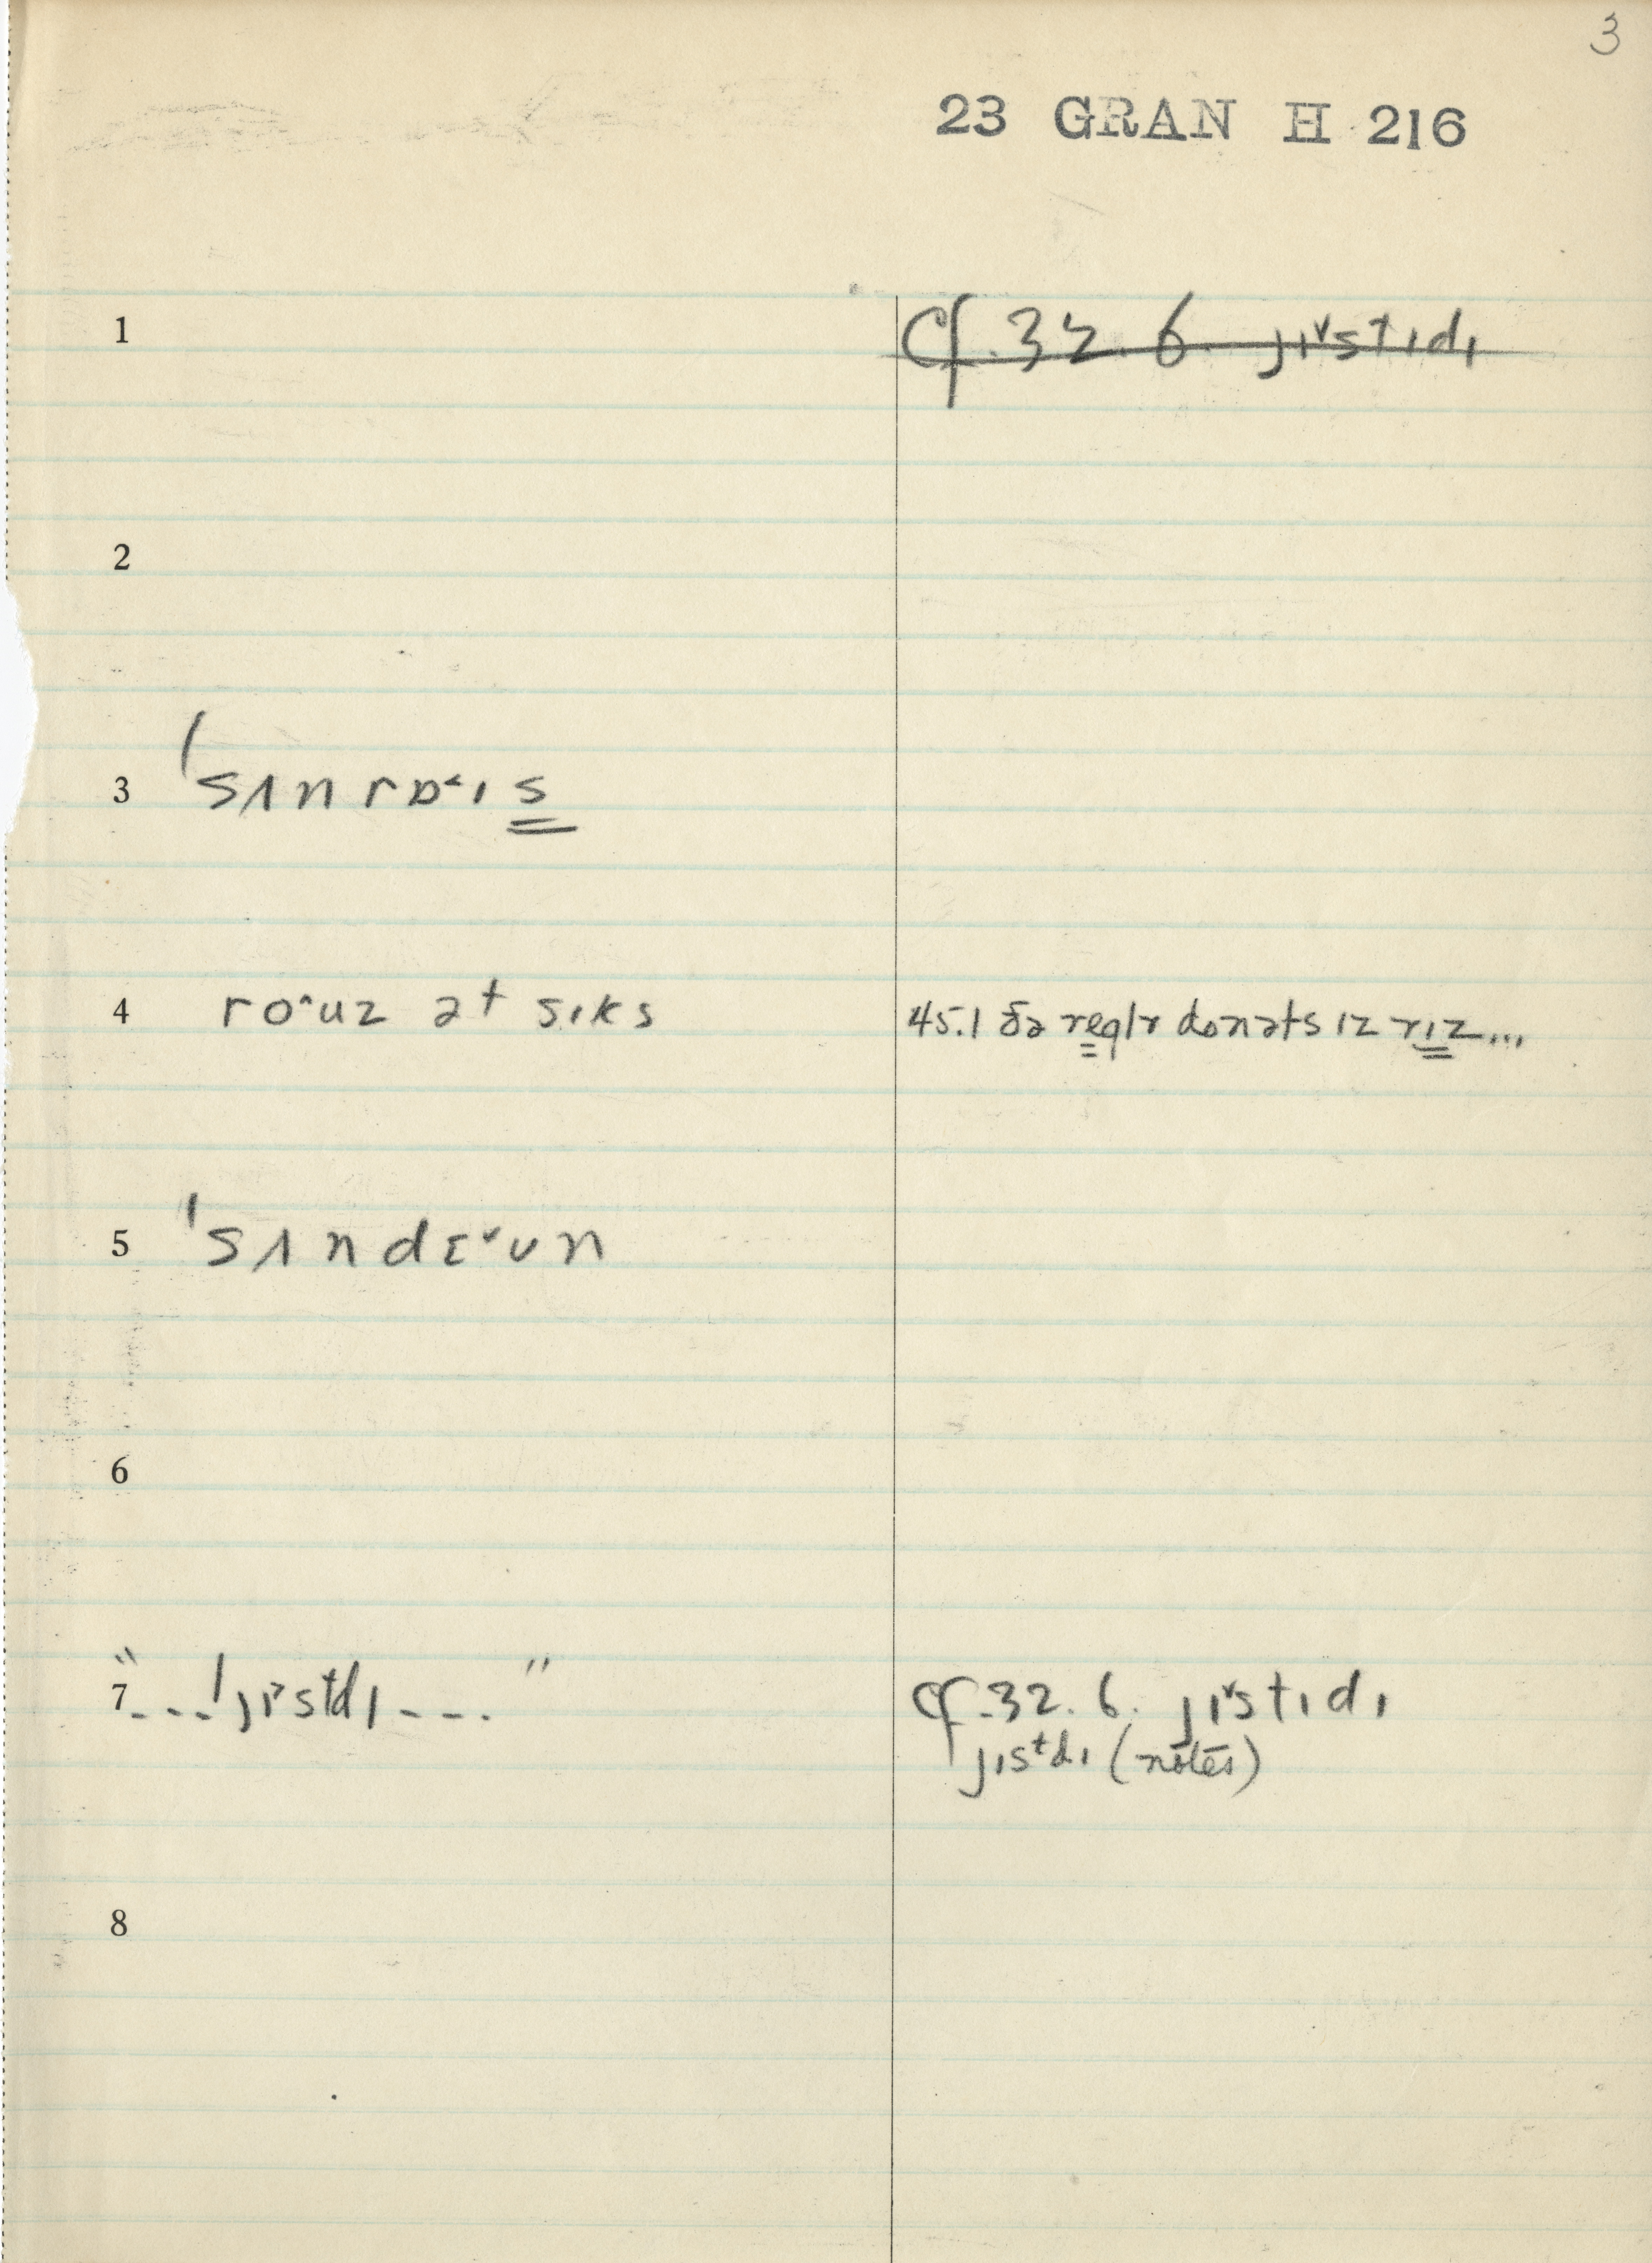 3
23 GRAN H 216
1 Cf. 32. 6. jɪ˅stɪdɪ
2
3 ˈsʌnrɒ˂ɪs
4 ro˄uz ət sɪks 45.1 ðə reglr donəts ɪz rɪz...
5 ˈsʌndɛ˅ʊn
6
7 "---ˈjɪ˃stdɪ----" Cf. 32. 6. jɪ˅stɪdɪ
jɪstdɪ (notes)
8